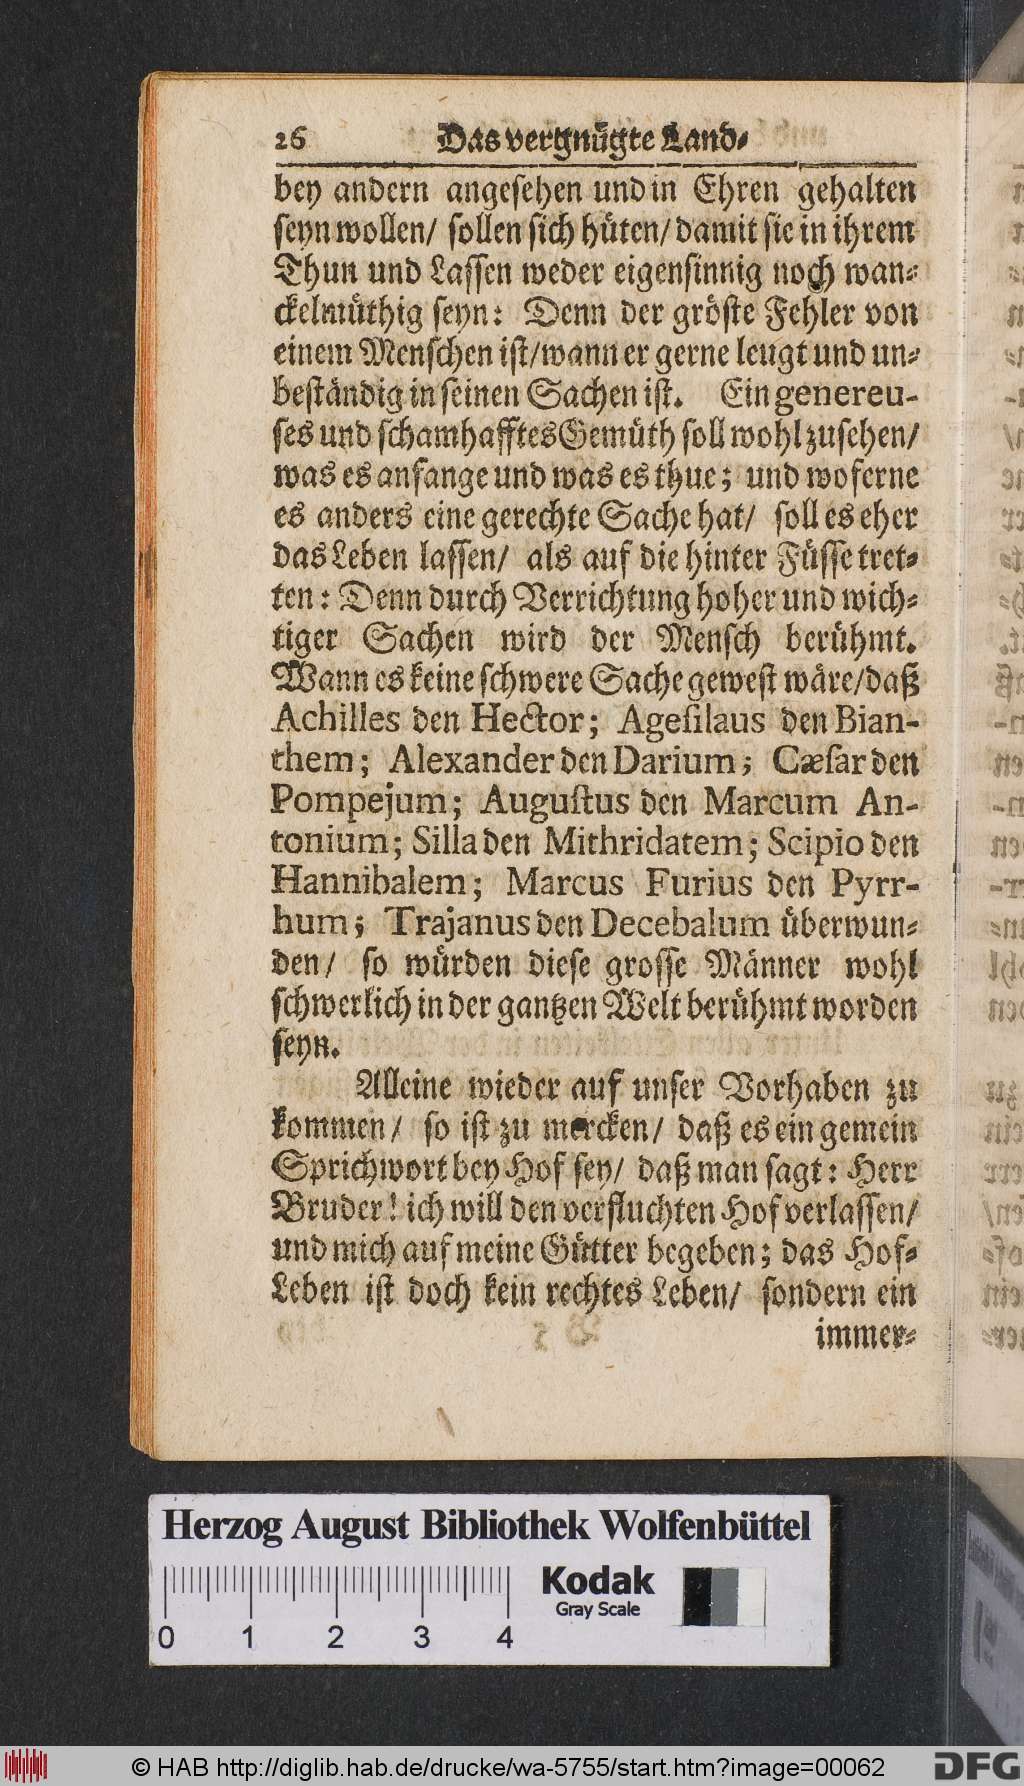 26 Das vergnügte Land-
bey andern angesehen und in Ehren gehalten
seyn wollen/ sollen sich hüten/ damit sie in ihrem
Thun und Lassen weder eigensinnig noch wan-
ckelmüthig seyn: Denn der gröste Fehler von
einem Menschen ist/ wann er gerne leugt und un-
beständig in seinen Sachen ist. Ein genereu-
ses und schamhafftes Gemüth soll wohl zusehen/
was es anfange und was es thue; und woferne
es anders eine gerechte Sache hat/ soll es eher
das Leben lassen/ als auf die hinter Füsse tret-
ten: Denn durch Verrichtung hoher und wich-
tiger Sachen wird der Mensch berühmt.
Wann es keine schwere Sache gewest wäre/ daß
Achilles den Hector; Agesilaus den Bian-
them; Alexander den Darium; Cæsar den
Pompejum; Augustus den Marcum An-
tonium; Silla den Mithridatem; Scipio den
Hannibalem; Marcus Furius den Pyrr-
hum; Trajanus den Decebalum überwun-
den/ so würden diese grosse Männer wohl
schwerlich in der gantzen Welt berühmt worden
seyn.
Alleine wieder auf unser Vorhaben zu
kommen/ so ist zu mercken/ daß es ein gemein
Sprichwort bey Hof sey/ daß man sagt: Herr
Bruder! ich will den verfluchten Hof verlassen/
und mich auf meine Gütter begeben; das Hof-
Leben ist doch kein rechtes Leben/ sondern ein
immer-
Herzog August Bibliothek Wolfenbüttel
Kodak
Gray Scale
0 1 2 3 4
© HAB http://diglib.hab.de/drucke/wa-5755/start.htm?image=00062
DFG